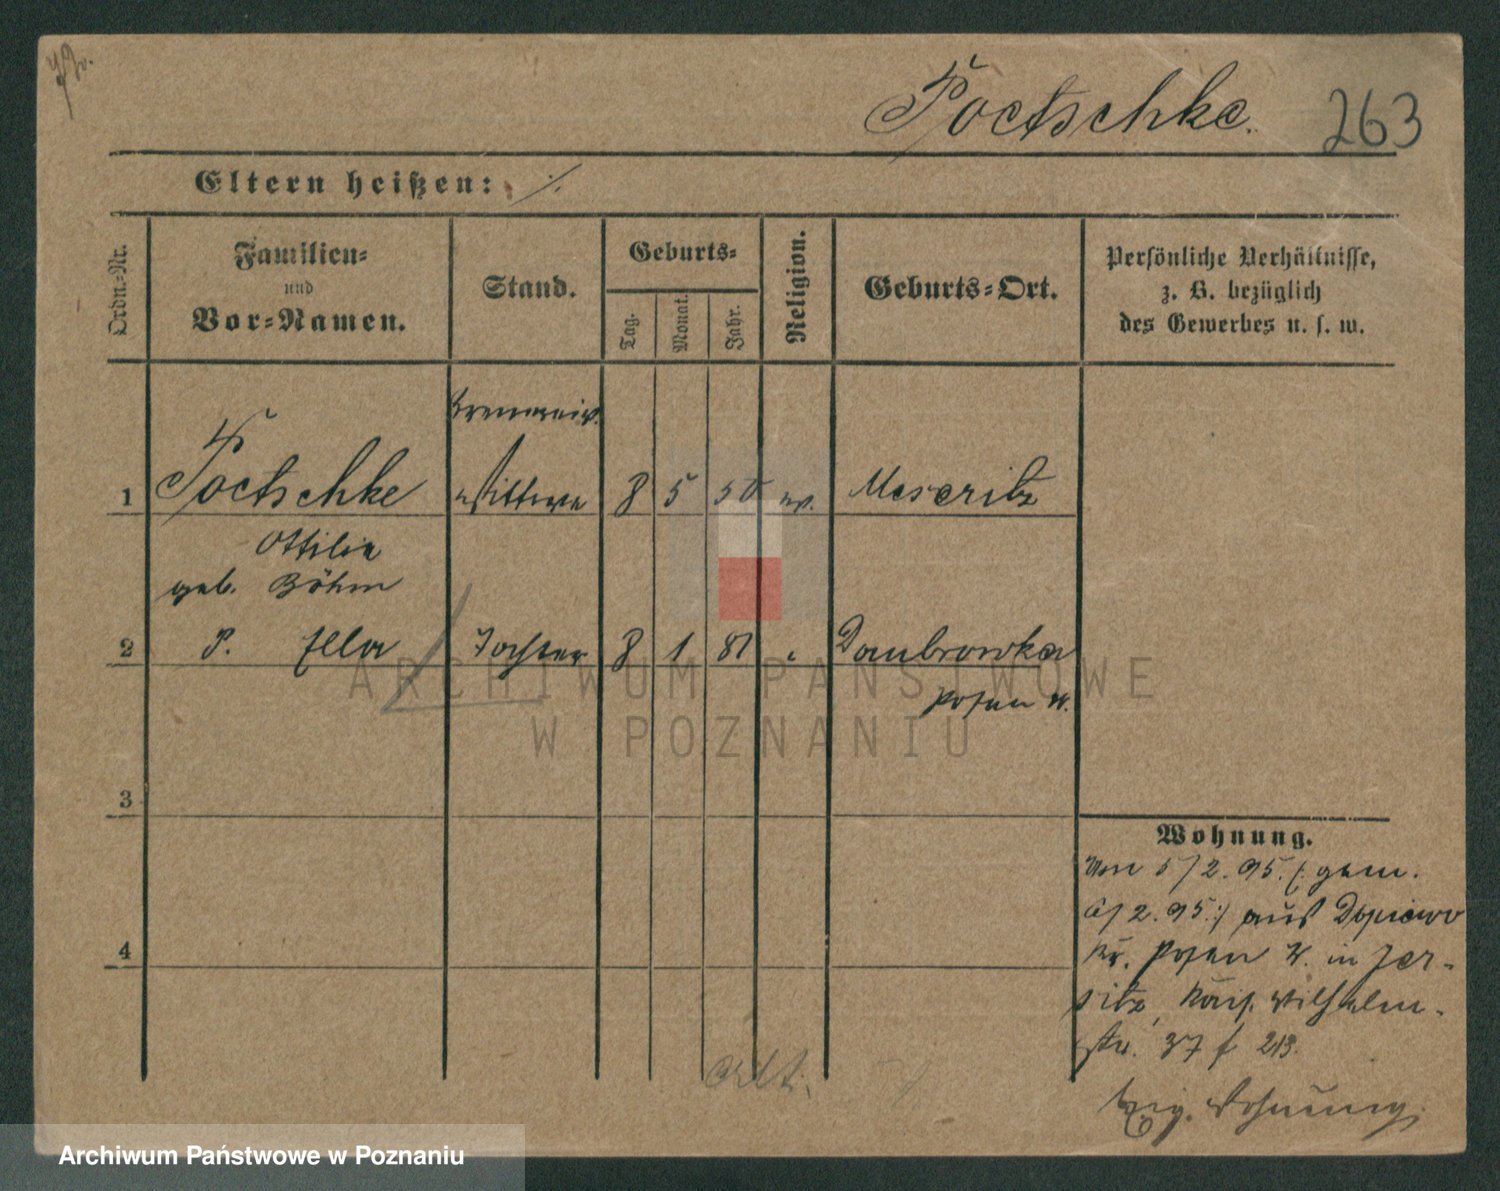 Poetschke.
263
Eltern heißen: ./.
Ordn.-Nr.
Familien-
und
Vor-Namen.
Stand.
Geburts-
Tag.
Monat.
Jahr.
Religion.
Geburts-Ort.
Persönliche Verhältnisse,
z. B. bezüglich
des Gewerbes u. s. w.
1 Poetschke Wittwe 8 5 50 ev. Meseritz
Ottilie
geb. Böhm
2 P. Ella Tochter 8 1 81 " Dombrowka
Posen W.
3
4
Wohnung.
Von 5/2. 95. /: gem.
6/2. 95 :/ aus Dopiewo
Kr. Posen W. in Jer-
sitz, Kais. Wilhelm-
str. 37 f 213.
Eig. Wohnung.
ARCHIWUM PAŃSTWOWE
W POZNANIU
Archiwum Państwowe w Poznaniu